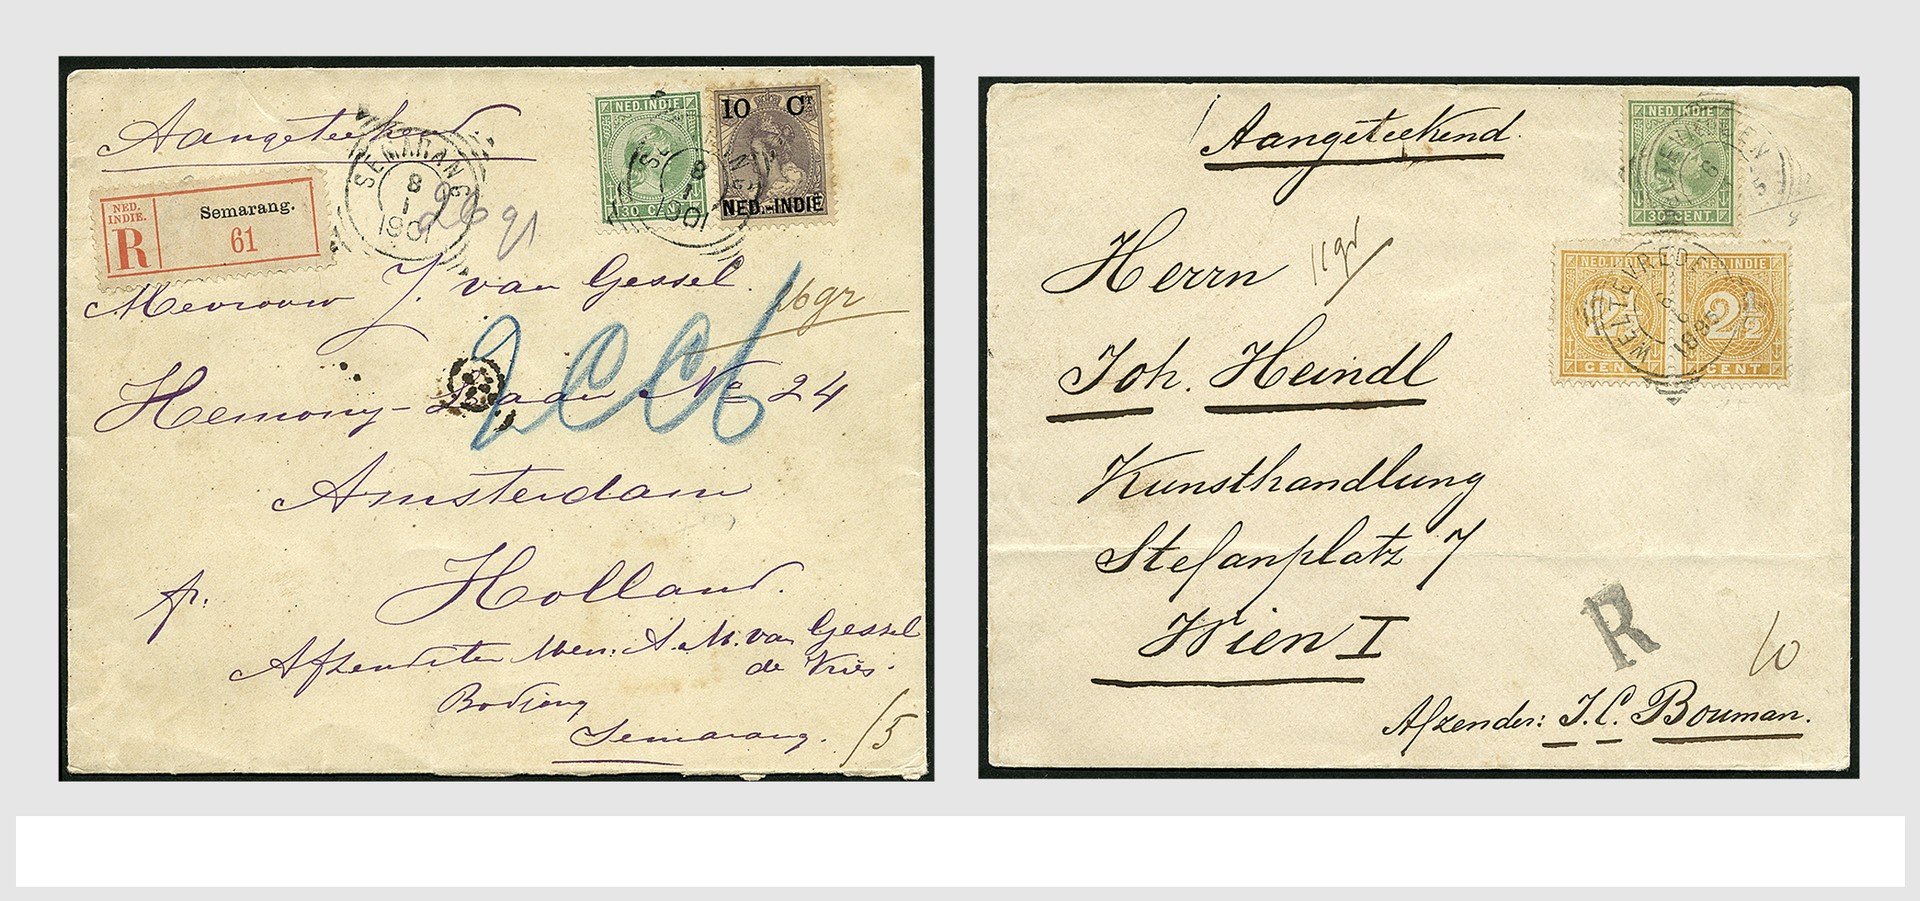 Aangeteekend
SEMARANG
8
1
1901
NED. INDIE
30 CENT
10 CT
NED.-INDIË
SEMARANG
8
1
1901
NED.
INDIE.
R
Semarang.
61
Mevrouw J. van Gessel.
16gr
Hemony-Laan No 24
Amsterdam
Holland.
fr.
Afzendster Mev: A. M. van Gessel
de Vries.
Bodjong
Semarang.
15
Aangeteekend.
NED. INDIE
30 CENT.
WELTEVREDEN
NED. INDIE
2½
CENT
NED. INDIE
2½
CENT
WELTEVREDEN
6
Herrn
11gr
Joh. Heindl
Kunsthandlung
Stefanplatz 7
Wien I
R
10
Afzender: J. C. Bouman.